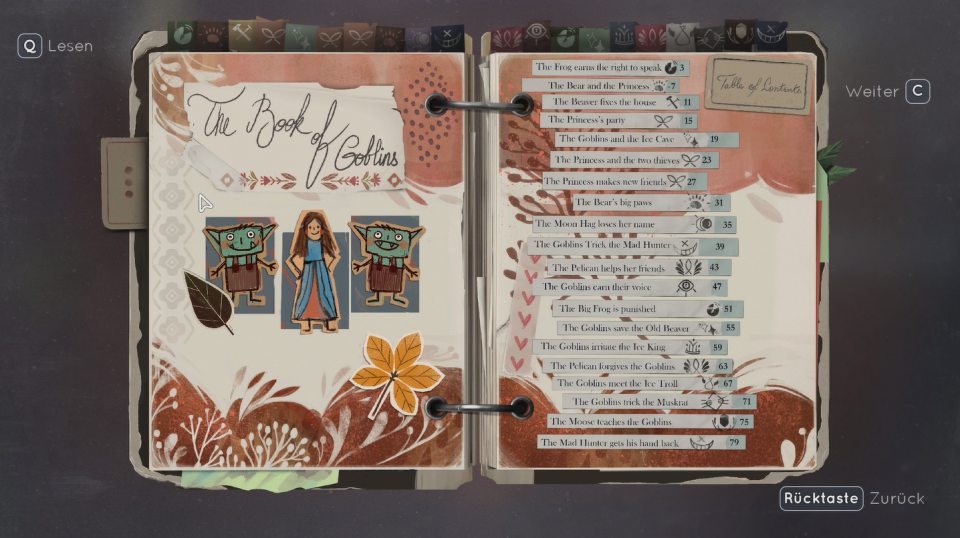 Q Lesen
Weiter C
The Book of Goblins
Table of Contents
The Frog earns the right to speak 3
The Bear and the Princess 7
The Beaver fixes the house 11
The Princess's party 15
The Goblins and the Ice Cave 19
The Princess and the two thieves 23
The Princess makes new friends 27
The Bear's big paws 31
The Moon Hag loses her name 35
The Goblins Trick the Mad Hunter 39
The Pelican helps her friends 43
The Goblins earn their voice 47
The Big Frog is punished 51
The Goblins save the Old Beaver 55
The Goblins irritate the Ice King 59
The Pelican forgives the Goblins 63
The Goblins meet the Ice Troll 67
The Goblins trick the Muskrat 71
The Moose teaches the Goblins 75
The Mad Hunter gets his hand back 79
Rücktaste Zurück